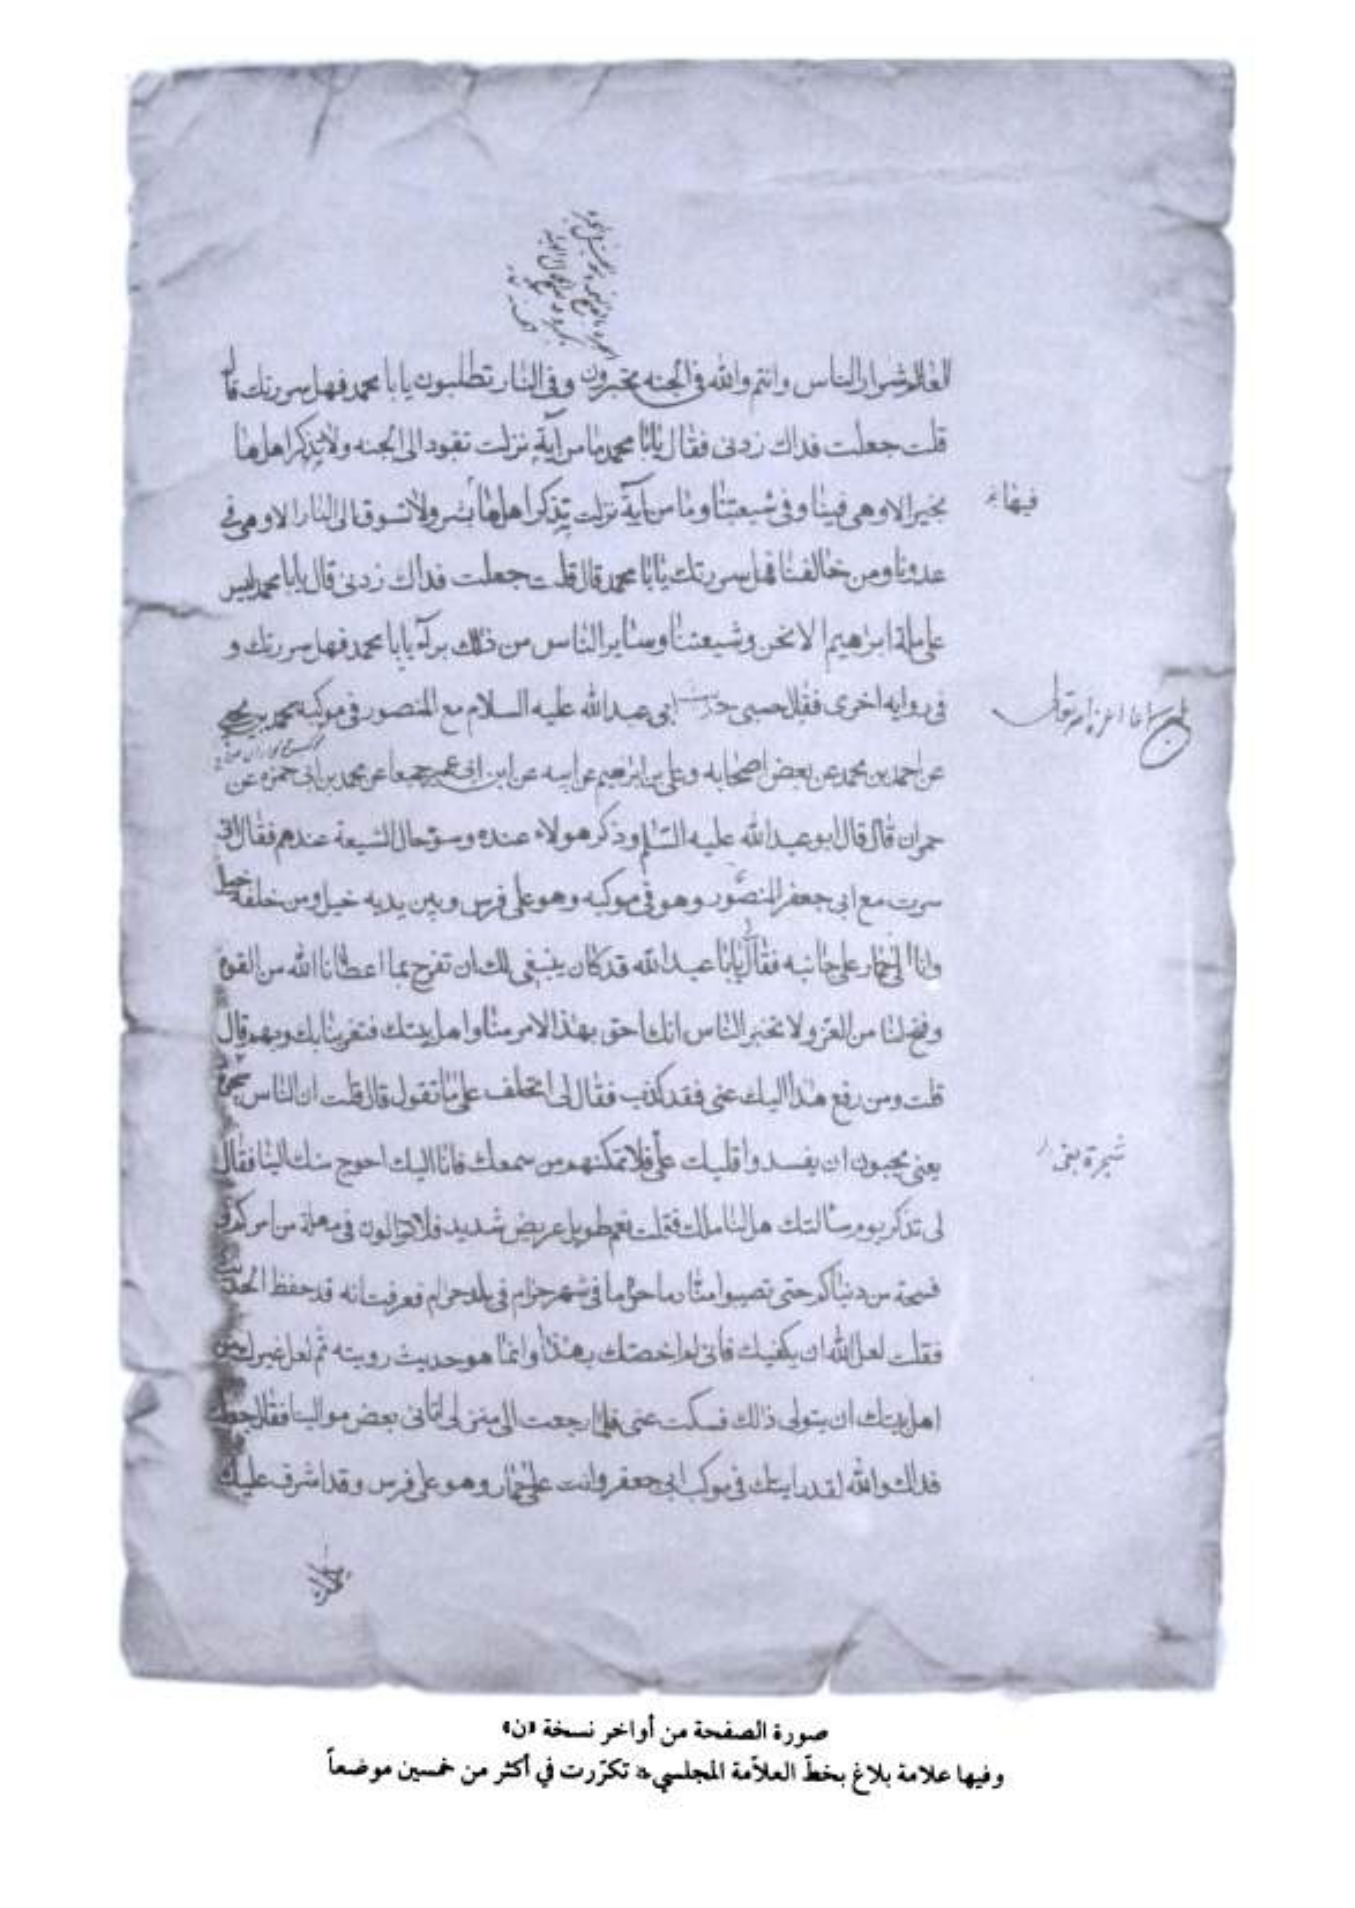 العالم شرار الناس وانتم والله في الجنه تحبرون وفى النار تطلبون يابا محمد فهل سررتك قال
قلت جعلت فداك زدنى فقال يابا محمد ما من آية نزلت تقود الى الجنه ولا يذكر اهلها
بخير الا وهى فينا وفى شيعتنا وما من آية نزلت يذكر اهلها بشر ولا تسوق الى النار الا وهى فى
فيها
عدونا ومن خالفنا فهل سررتك يابا محمد قال قلت جعلت فداك زدنى قال يابا محمد ليس
على ملة ابرهيم الا نحن وشيعتنا وساير الناس من ذلك برآء يابا محمد فهل سررتك و
فى روايه اخرى فقال حسبى حديث ابى عبدالله عليه السلام مع المنصور فى موكبه محمد بن يحيى
عن احمد بن محمد عن بعض اصحابه وعلى بن ابرهيم عن ابيه عن ابن ابى عمير جميعا عن محمد بن ابى حمزه عن
حمران قال قال ابو عبدالله عليه السلم وذكر هولاء عنده وسوء حال الشيعة عندهم فقال انى
سرت مع ابى جعفر المنصور وهو فى موكبه وهو على فرس وبين يديه خيل ومن خلفه خيل
وانا على حمار على جانبه فقال لى يابا عبدالله قد كان ينبغى لك ان تفرح بما اعطانا الله من القوة
وفتح لنا من العز ولا تخبر الناس انك احق بهذا الامر منا واهل بيتك فتغرينا بك وبهم قال
قلت ومن رفع هذا اليك عنى فقد كذب فقال لى اتحلف على ما تقول قال قلت ان الناس سحرة
شجرة بغى
يعنى يحبون ان يفسدوا قلبك على فلا تمكنهم من سمعك فانا اليك احوج منك الينا فقال
لى تذكر يوم سالتك هل لنا ملك فقلت نعم طويل عريض شديد فلا تزالون فى مهلة من امركم و
فسحة من دنياكم حتى تصيبوا منا دما حراما فى شهر حرام فى بلد حرام فعرفت انه قد حفظ الحديث
فقلت لعل الله ان يكفيك فانى لم اخصك بهذا وانما هو حديث رويته ثم لعل غيرك من
اهل بيتك ان يتولى ذلك فسكت عنى فلما رجعت الى منزلى اتانى بعض موالينا فقال جعلت
فداك والله لقد رايتك فى موكب ابى جعفر وانت على حمار وهو على فرس وقد اشرف عليك
صورة الصفحة من أواخر نسخة «ن»
وفيها علامة بلاغ بخطّ العلاّمة المجلسي تكرّرت في أكثر من خمسين موضعاً